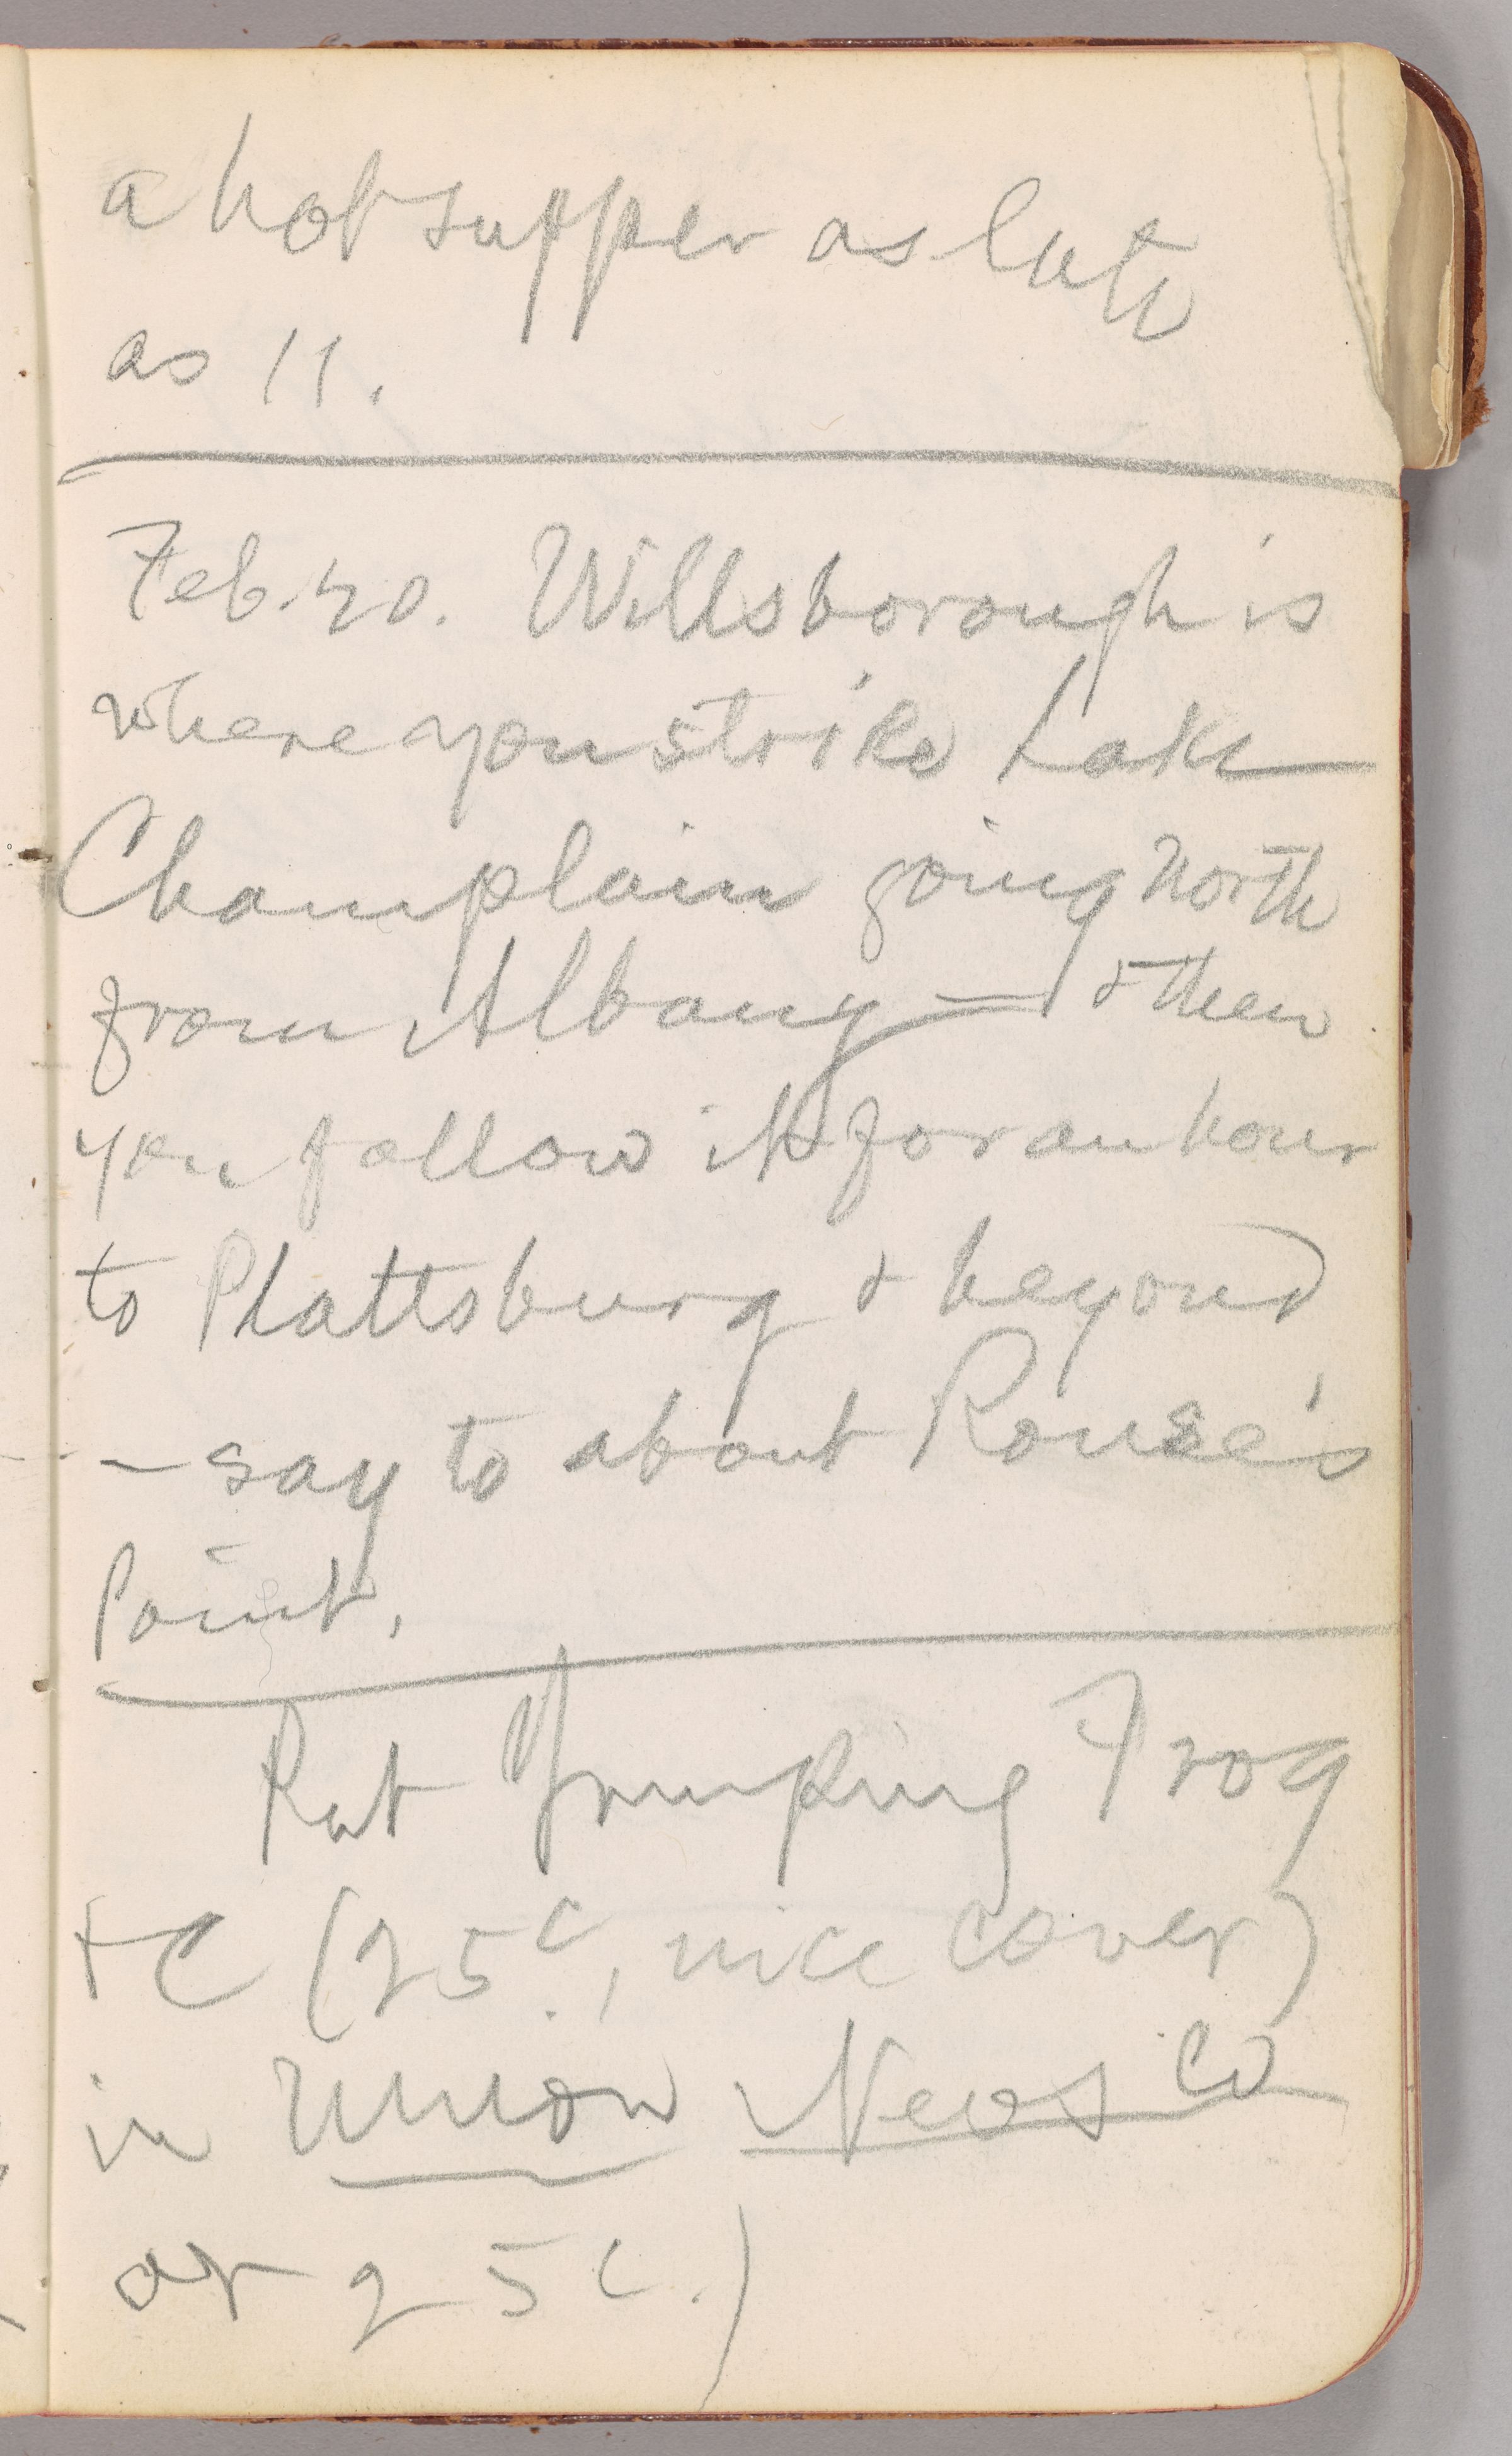 a hot supper as late
as 11.
Feb. 20. Willsborough is
where you strike Lake
Champlain going north
from Albany — & then
you follow it for an hour
to Plattsburg & beyond
— say to about Rouse's
Point.
Put Jumping Frog
&C (25c, nice cover)
in Union News Co
at 25c.)